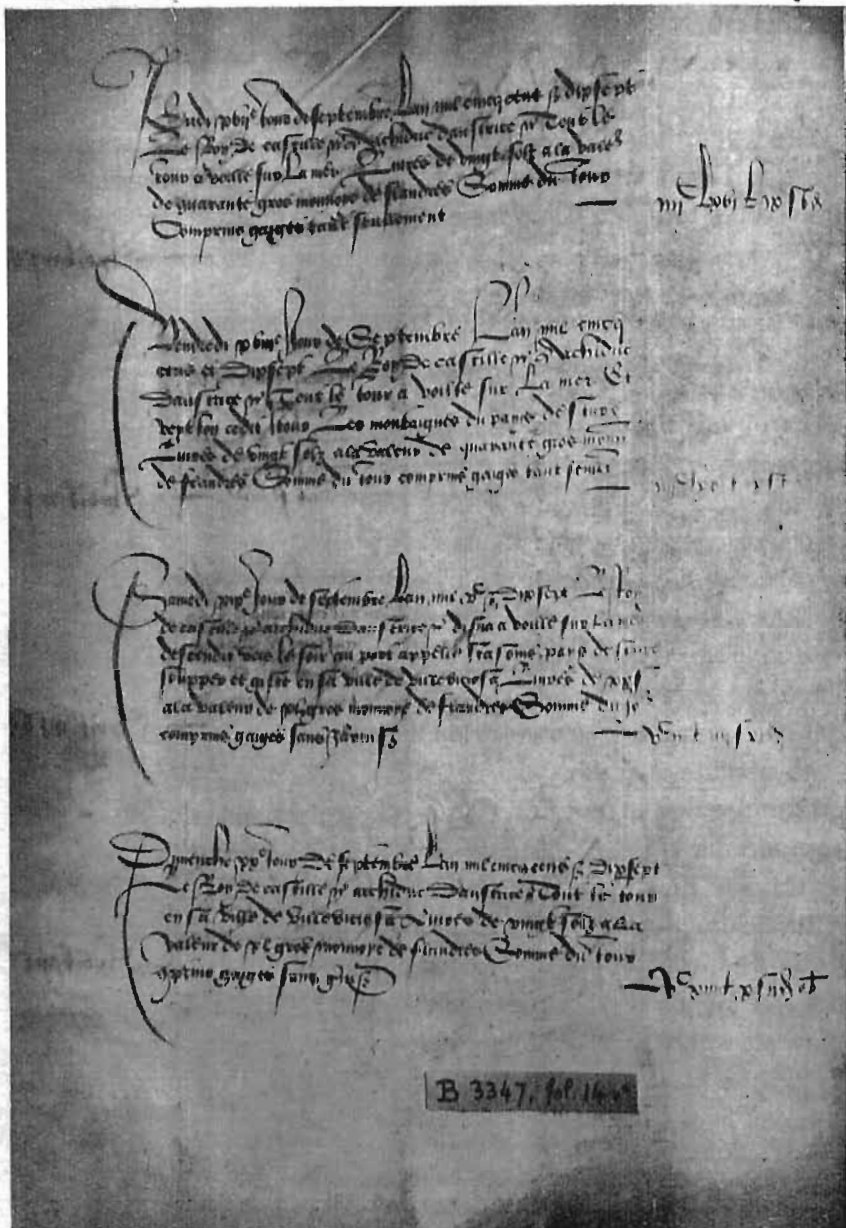 Jeudi xvije jour de septembre Lan mil cincq cent & dixsept
Le Roy De castille &c archiduc daustrice &c Tout le
jour a voille sur La mer Livres de vingt solz a la valeur
de quarante gros monnoye de flandres Somme du jour
Comprins gaiges tant seullement
iiijc lxvj L ix s
Vendredi xviije jour de Septembre Lan mil cincq
cens et Dixsept Le Roy De castille &c Archiduc
Daustrice &c Tout le jour a voille sur La mer Et
cedit jour Les montaignes du pays de
Livres de vingt solz a la valeur de quarante gros monn
de flandres Somme du jour comprins gaiges tant seullement
Samedi xixe jour de septembre Lan mil vc & Dixsept Le Roy
de castille &c archiduc Daustrice &c disna a voille sur La mer
descendit vers le soir au port appelle pays de
soupper et giste en sa ville de villeviciosa Livres de xx s
a la valeur de xl gros monnoye de flandres Somme du jour
comprins gaiges sans
Dymenche xxe jour De septembre Lan mil cincq cens & Dixsept
Le Roy De castille &c archiduc Daustrice &c Tout le jour
en sa ville de villeviciosa Livres de vingt solz a la
valeur de xl gros monnoye de flandres Somme du jour
comprins gaiges sans
B 3347, fol. 14 vo